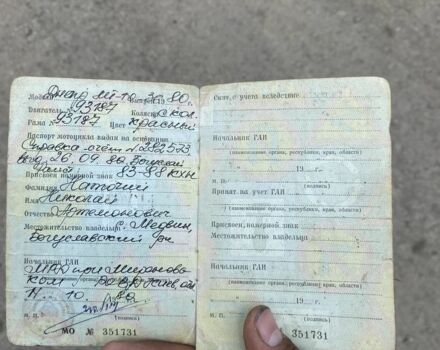 Модель Днепр МТ-10 Выпуск 19 80 г.
Двигатель № 93187 Коляска с кол.
Рама № 93187 Цвет красный
Паспорт мотоцикла выдан на основании
Справка счёт 282573
26.09.80
Присвоен номерной знак 83-88 КХН
Фамилия
Имя Николай
Отчество Автомонович
Местожительство владельца с. Медвин,
Богуславский р-н.
Начальник ГАИ
МРЭО при Миронов
ком
11. 10. 80
м. п. (подпись)
МО № 351731
Снят с учета вследствие
Начальник ГАИ
(наименование органа, республики, края, области)
19 г.
м. п. (подпись)
Принят на учет ГАИ
(наименование органа, республики, края, области)
Присвоен номерной знак
Местожительство владельца
Начальник ГАИ
(наименование органа, республики, края, области)
19 г.
м. п. (подпись)
№ 351731